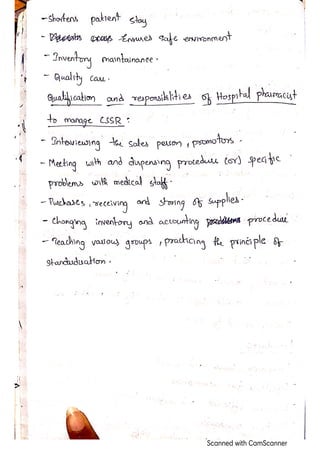 - Shortens patient stay
- Ensures safe environment
- Inventory maintainance.
- Quality care.
Qualification and responsibilities of Hospital pharmacist
to manage CSSR :
- Interviewing the sales person, promotors.
- Meeting with and dispensing procedure (or) specific
problems with medical staff.
- Purchases, receiving and storing of supplies.
- Changing inventory and accounting procedure
- Teaching various groups, practicing the principle of
Scanned with CamScanner